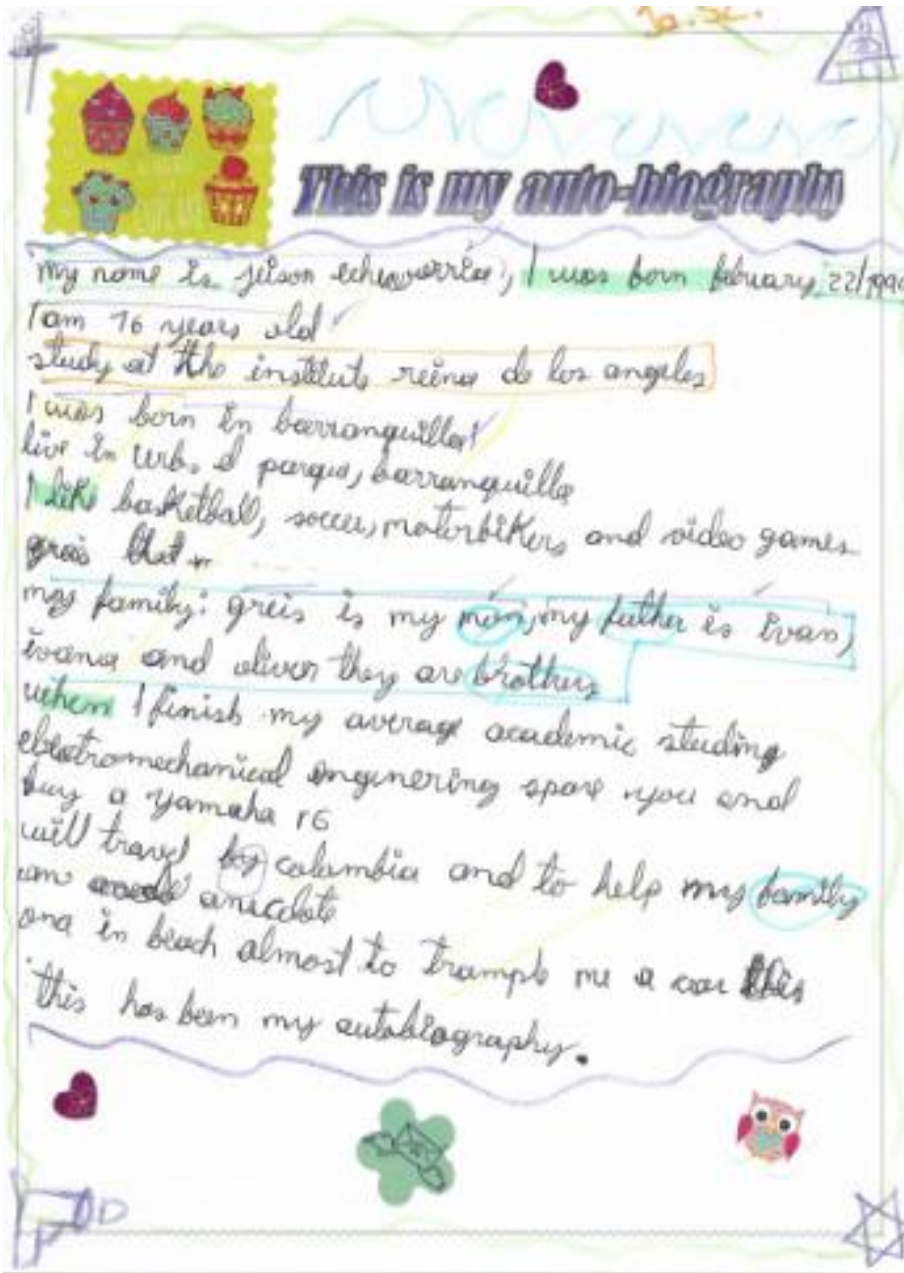 This is my auto-biography
my name is jeison echeverria, I was born february 22/199
I am 16 years old
study at the institute reina de los angeles
I was born in barranquilla
live in urb. el parque, barranquilla
I like basketball, soccer, motorbikers and video games
greis that
my family: greis is my mom, my father is ivan,
ivana and oliver they are brothers
when I finish my average academic studing
electromechanical enginering spare you and
buy a yamaha r6
will travel by colombia and to help my family
an anecdote
ona in beach almost to trample me a car this
this has been my autobiography.